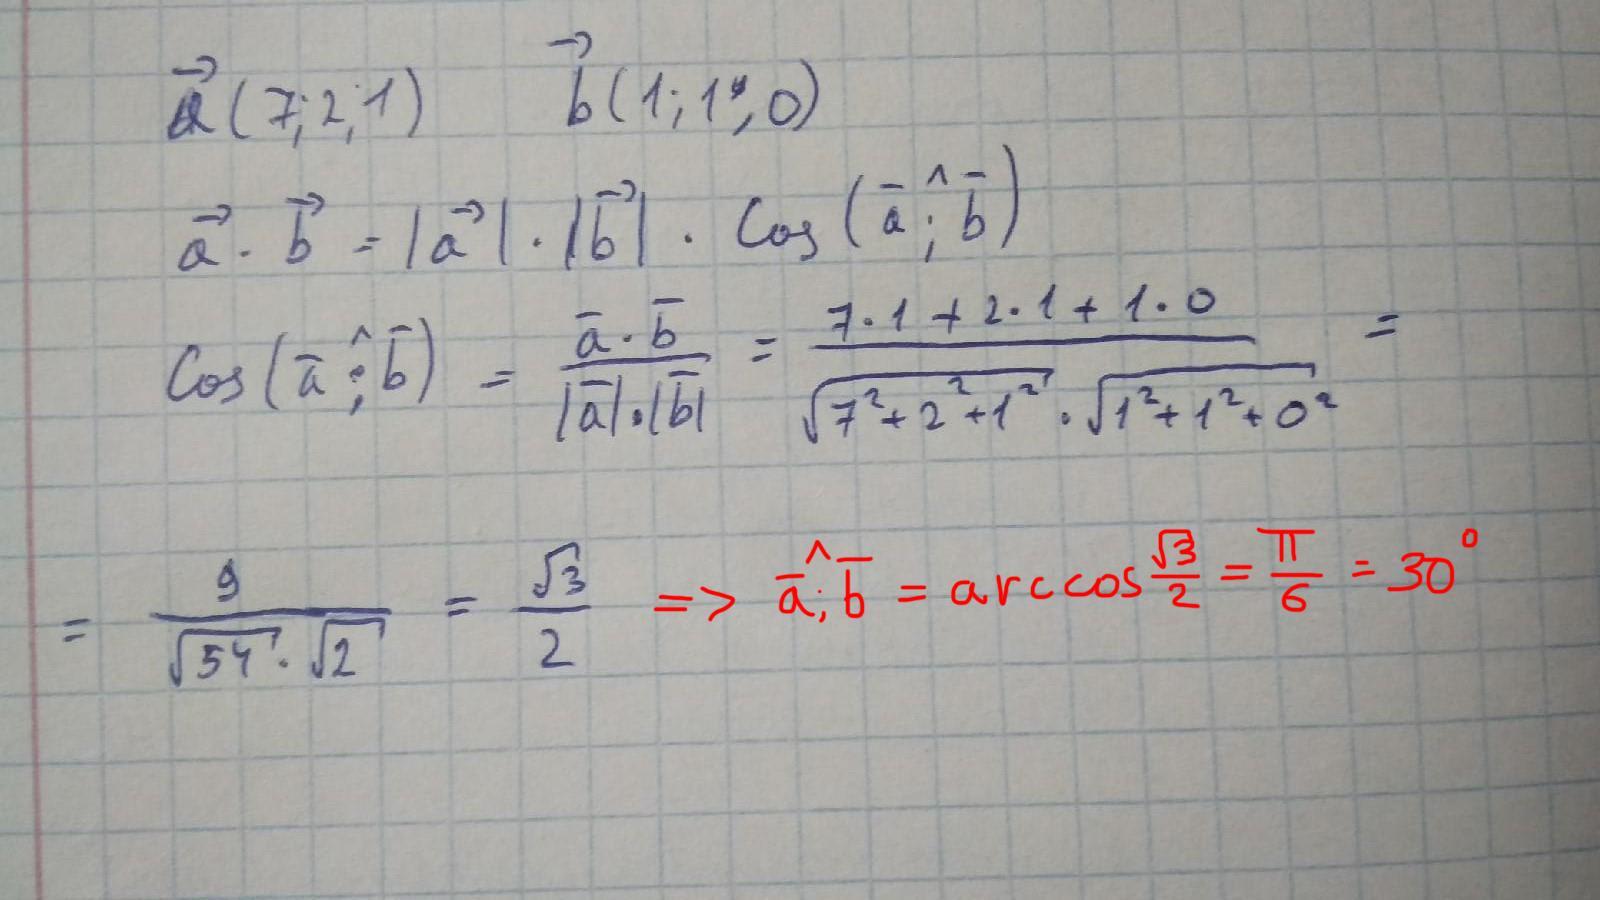 a⃗ (7; 2; 1) b⃗ (1; 1; 0)
a⃗ · b⃗ = |a⃗| · |b⃗| · Cos(a̅ ^; b̅)
Cos(a̅ ^; b̅) = (a̅ · b̅)/(|a̅| · |b̅|) = (7·1 + 2·1 + 1·0)/(√(7² + 2² + 1²) · √(1² + 1² + 0²)) =
= 9/(√54 · √2) = √3/2 => a̅ ^; b̅ = arccos √3/2 = π/6 = 30°